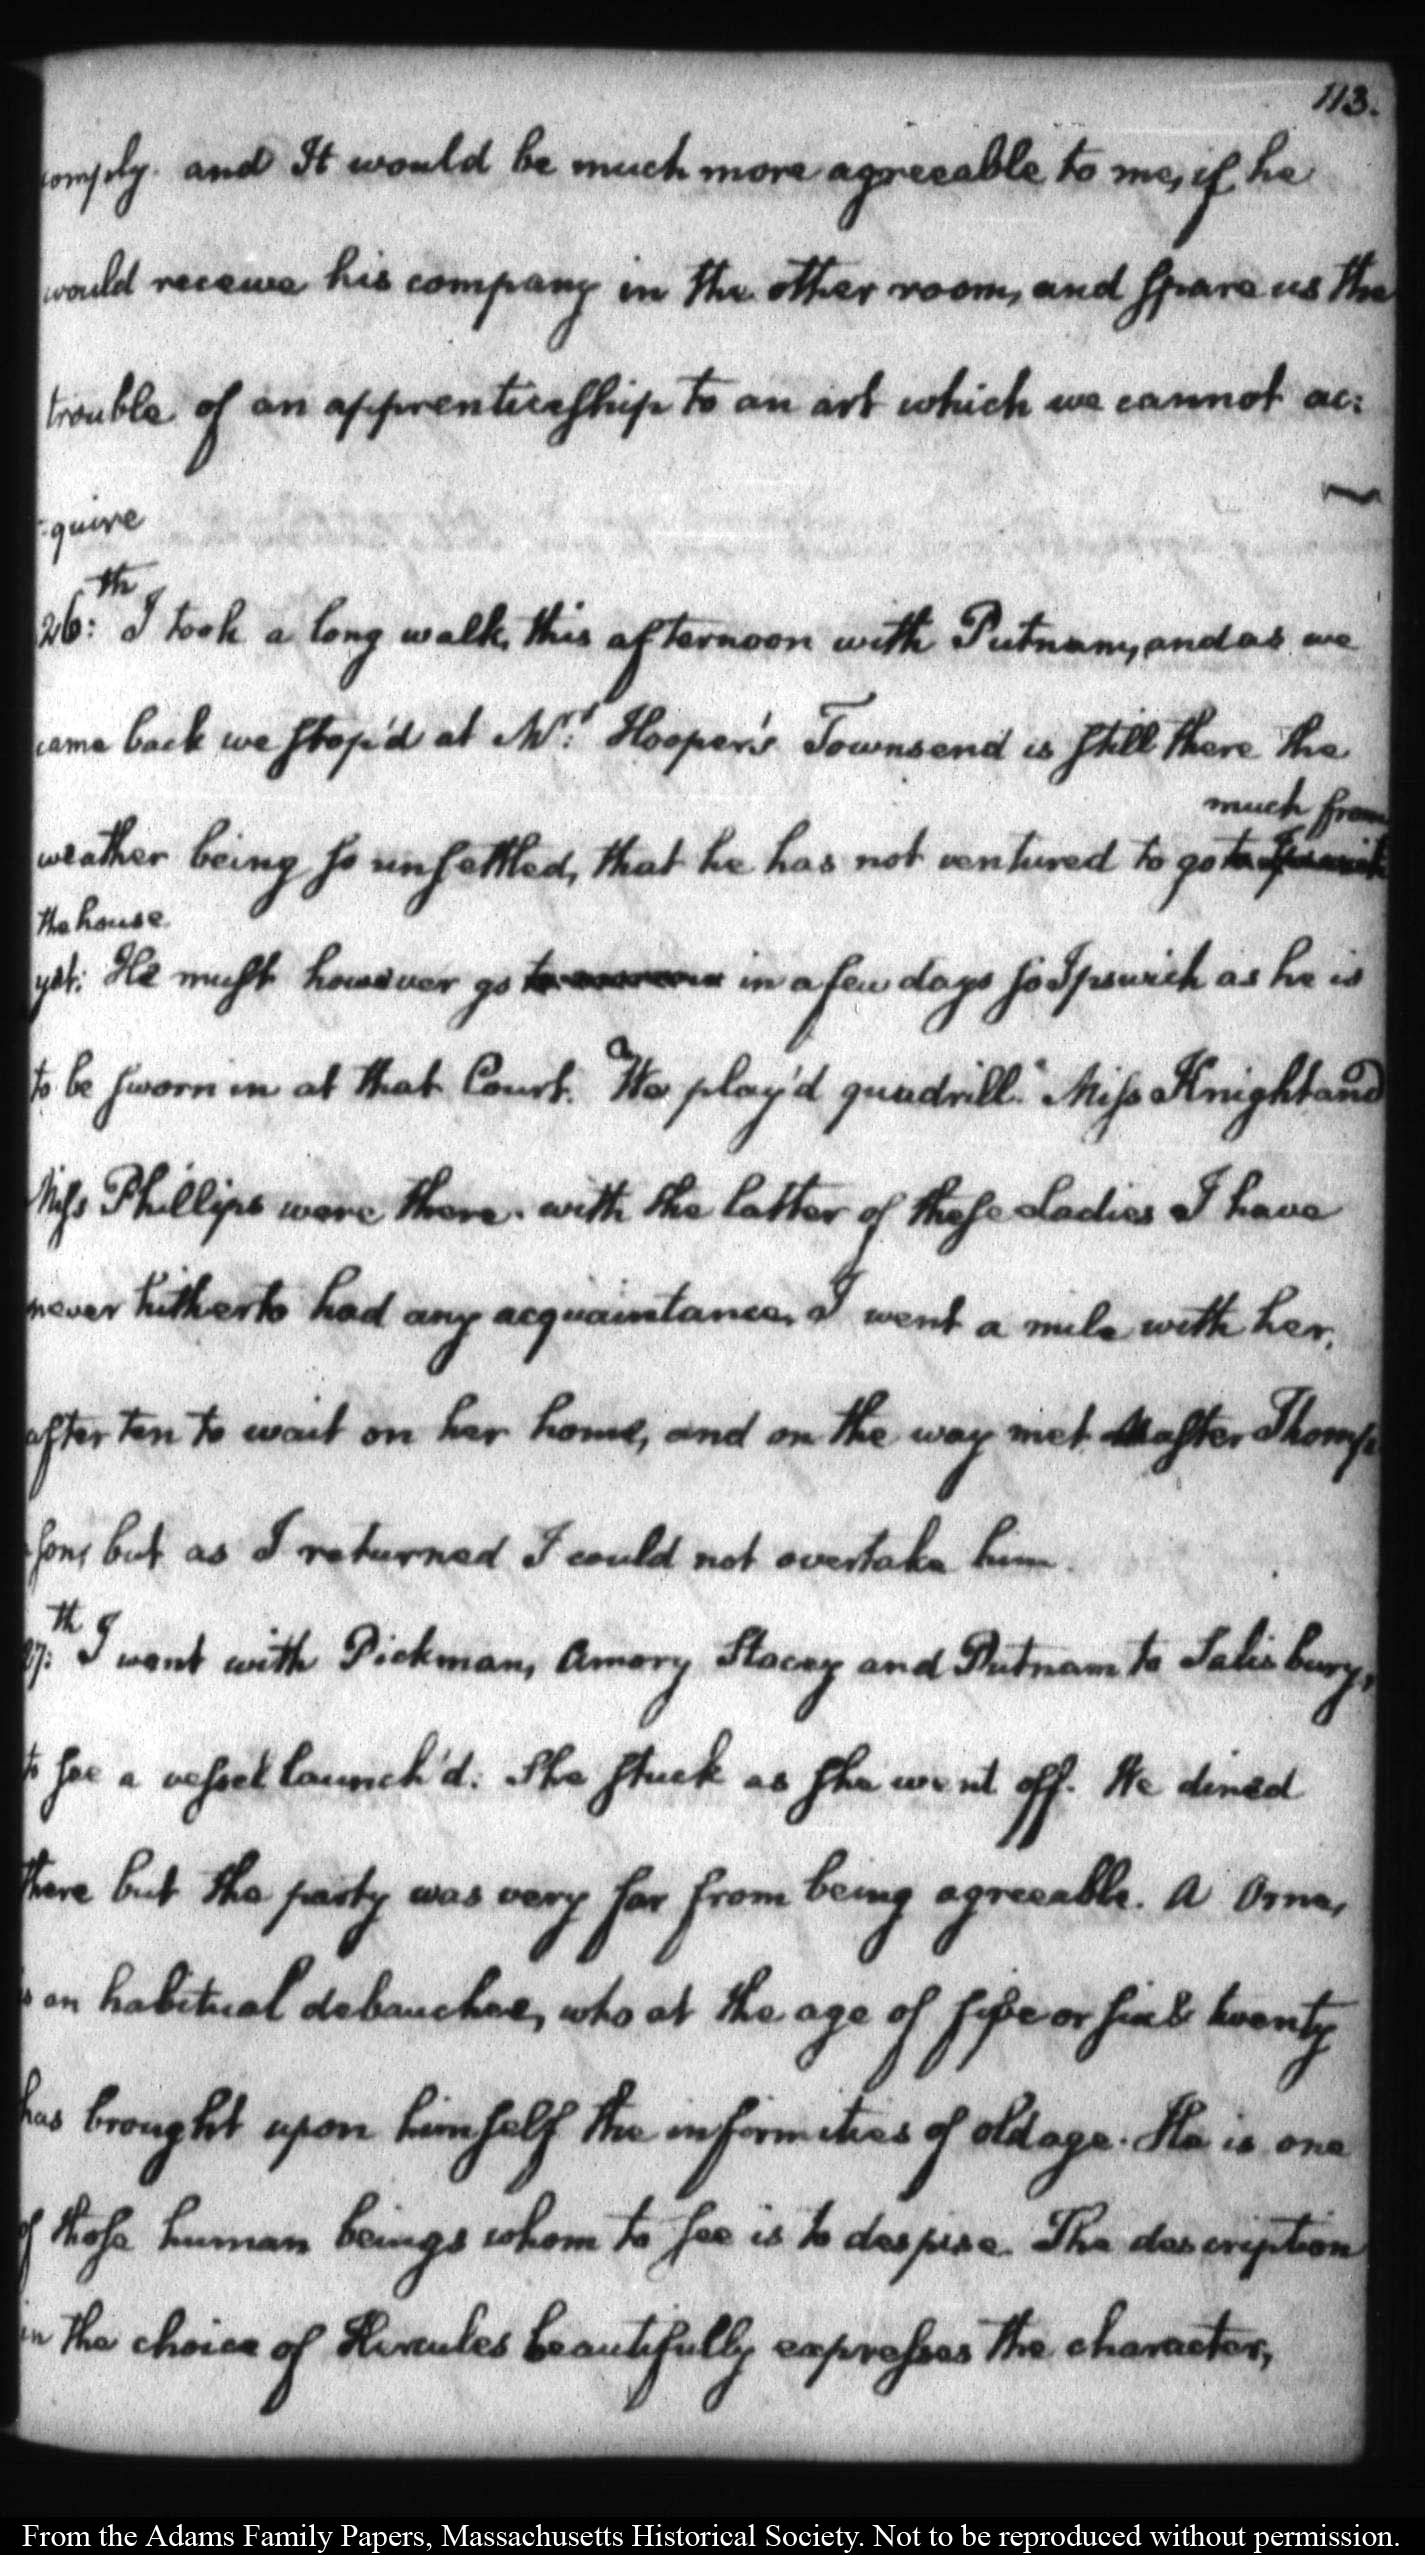 113.
comply. and It would be much more agreeable to me, if he
would receive his company in the other room, and spare us the
trouble of an apprenticeship to an art which we cannot ac:
:quire
26:th I took a long walk, this afternoon with Putnam, and as we
came back we stop'd at Mrs: Hooper's Townsend is still there the
much from
weather being so unsettled, that he has not ventured to go to Ipswich
the house
yet: He must however go in a few days to Ipswich as he is
to be sworn in at that Court. We play'd quadrill. Miss Knight and
Miss Phillips were there. with the latter of these Ladies I have
never hitherto had any acquaintance, I went a mile with her,
after ten to wait on her home, and on the way met Master Thomp
:son, but as I returned I could not overtake him.
27:th I went with Pickman, Amory Stacey and Putnam to Salisbury,
to see a vessel launch'd: She stuck as she went off. We dined
there but the party was very far from being agreeable. A Orne,
is an habitual debauchee, who at the age of five or six & twenty
has brought upon himself the infirmities of old age. He is one
of those human beings whom to see is to despise. The description
in the choice of Hercules beautifully expresses the character,
From the Adams Family Papers, Massachusetts Historical Society. Not to be reproduced without permission.